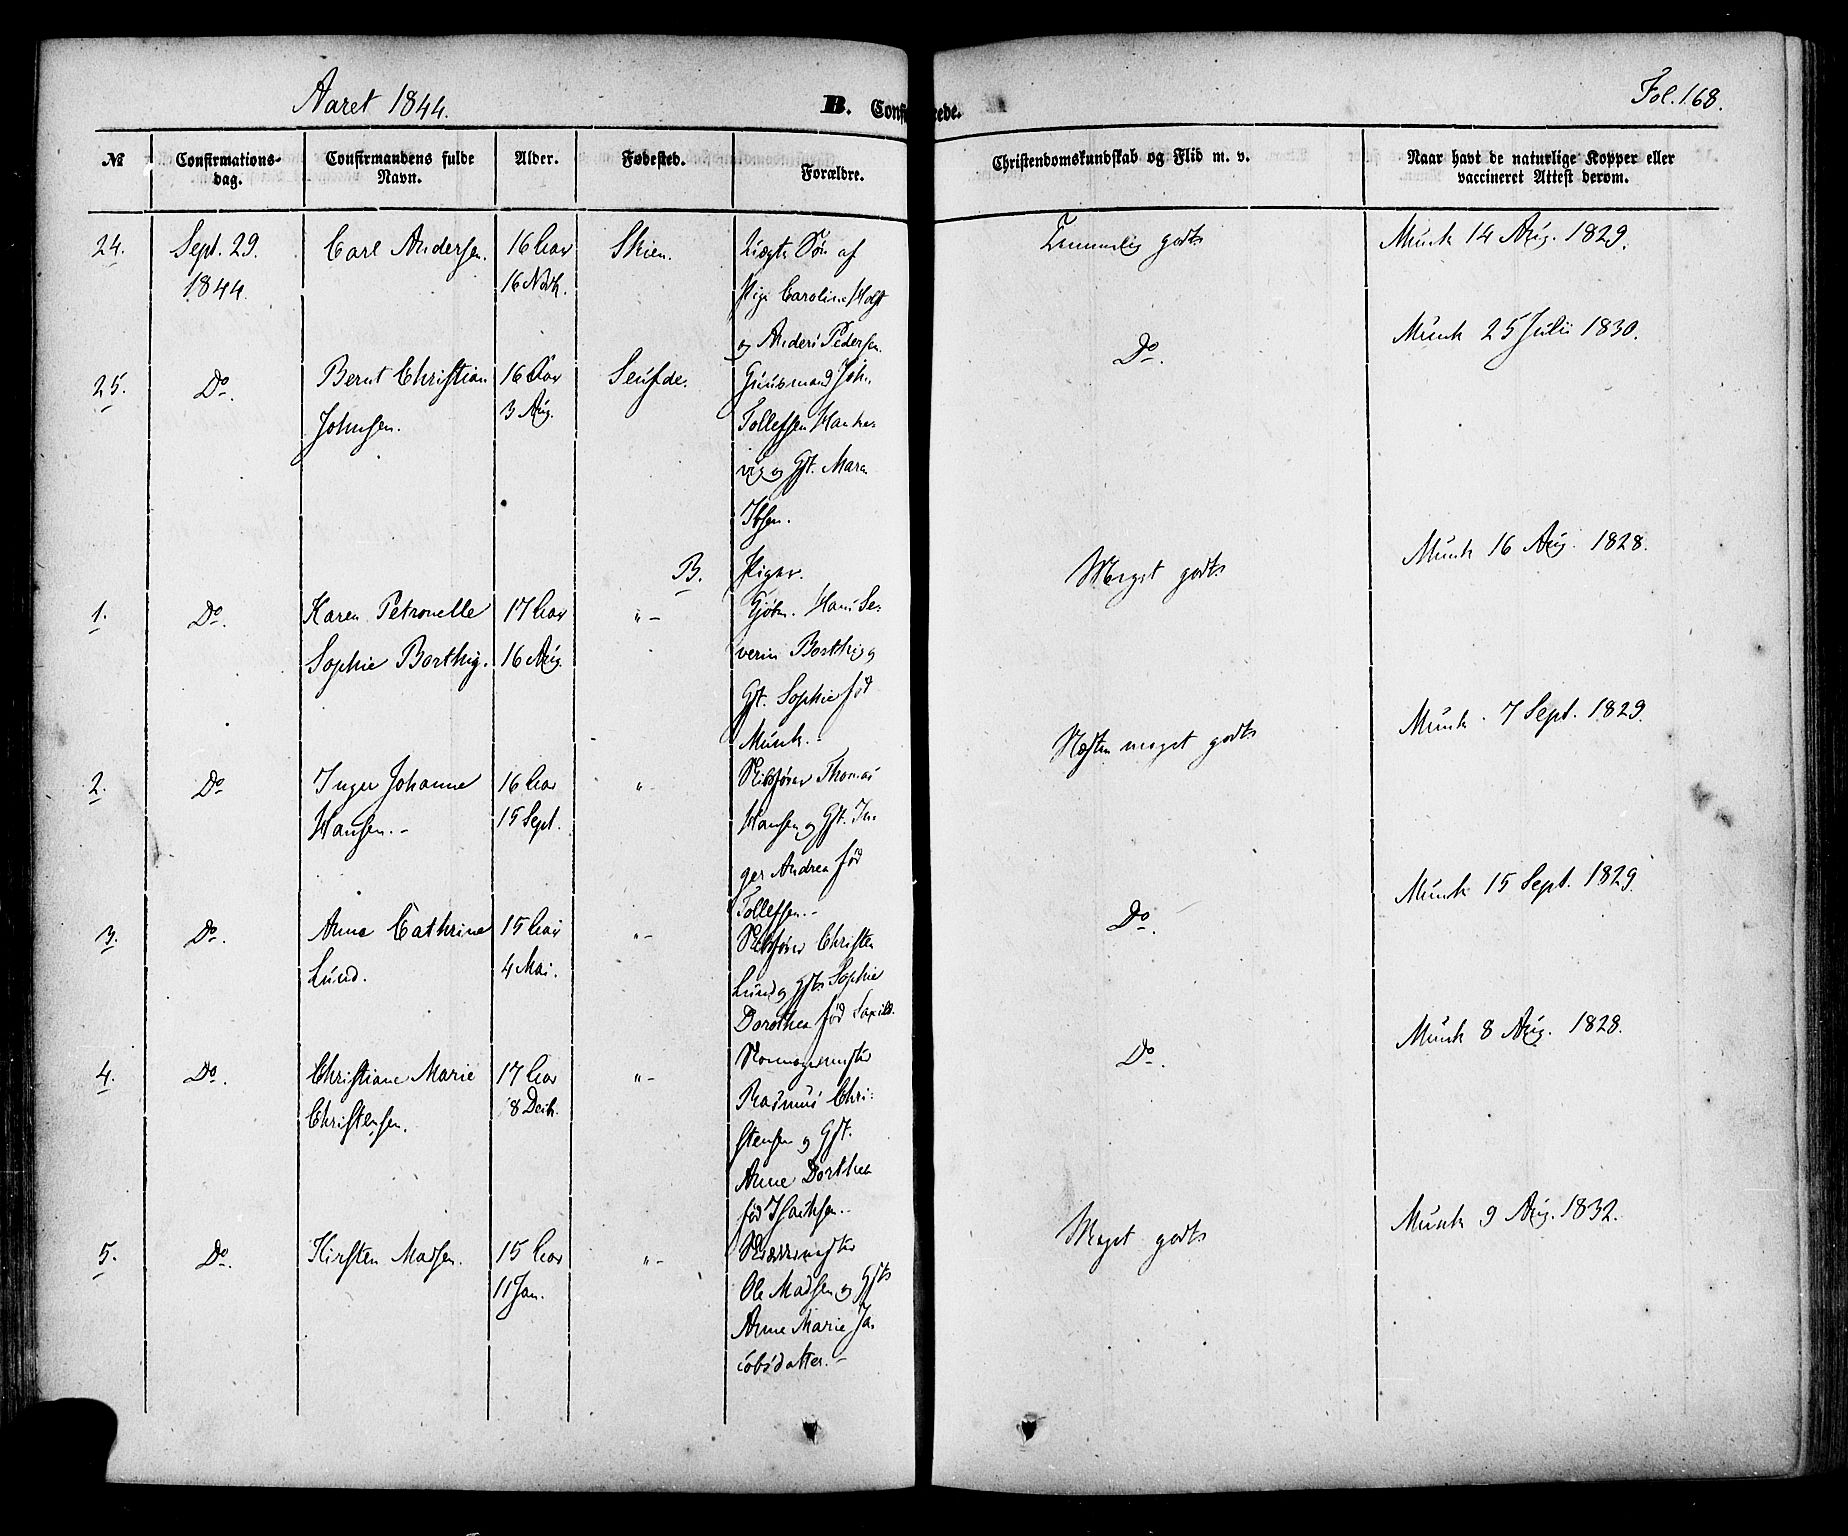 Aaret 1844.
B. Confirmerede.
Fol. 168.
№
Confirmations-
dag.
Confirmandens fulde
Navn.
Alder.
Fødested.
Forældre.
Christendomskundskab og Flid m. v.
Naar havt de naturlige Kopper eller
vaccineret Attest derom.
24. Sept. 29. Carl Andersen. 16 Aar Skien. Uægte Søn af Temmelig godt Munk 14 Aug. 1829.
1844. 16 Novb. Pige Caroline Holst
og Anders Pedersen.
25. Do. Bernt Christian 16 Aar Huusmand John Do. Munk 25 Julii 1830.
Johnsen. 3 Aug. Tollefsen
og Gft. Maren
Ibsen.
B. Piger.
1. Do. Karen Petronelle 17 Aar " – Hans Se- Meget godt Munk 16 Aug. 1828.
Sophie Borthig. 16 Aug. verin Borthig og
Gft. Sophie fød
Munk. –
2. Do Inger Johanne 16 Aar " – Skibsfører Thomas Næsten meget godt Munk 7 Sept. 1829.
Hansen. – 15 Sept. Hansen og Gft. In-
ger Andrea fød
Tollefsen. –
3. Do. Anne Cathrine 15 Aar " – Skibsfører Christen Do. Munk 15 Sept. 1829.
Lund. 4 Mai. Lund og Gft. Sophie
Dorothea fød
4. Do. Christiane Marie 17 Aar " – Do. Munk 8 Aug. 1828.
Christensen. 8 Decb. Rasmus Chri-
stensen og Gft.
Anne Dorthea
fød Isachsen. –
5. Do. Kirsten Madsen. 15 Aar " – Meget godt Munk 9 Aug. 1832.
11 Jan. Ole Madsen og Gft.
Anne Marie Ja-
cobsdatter. –